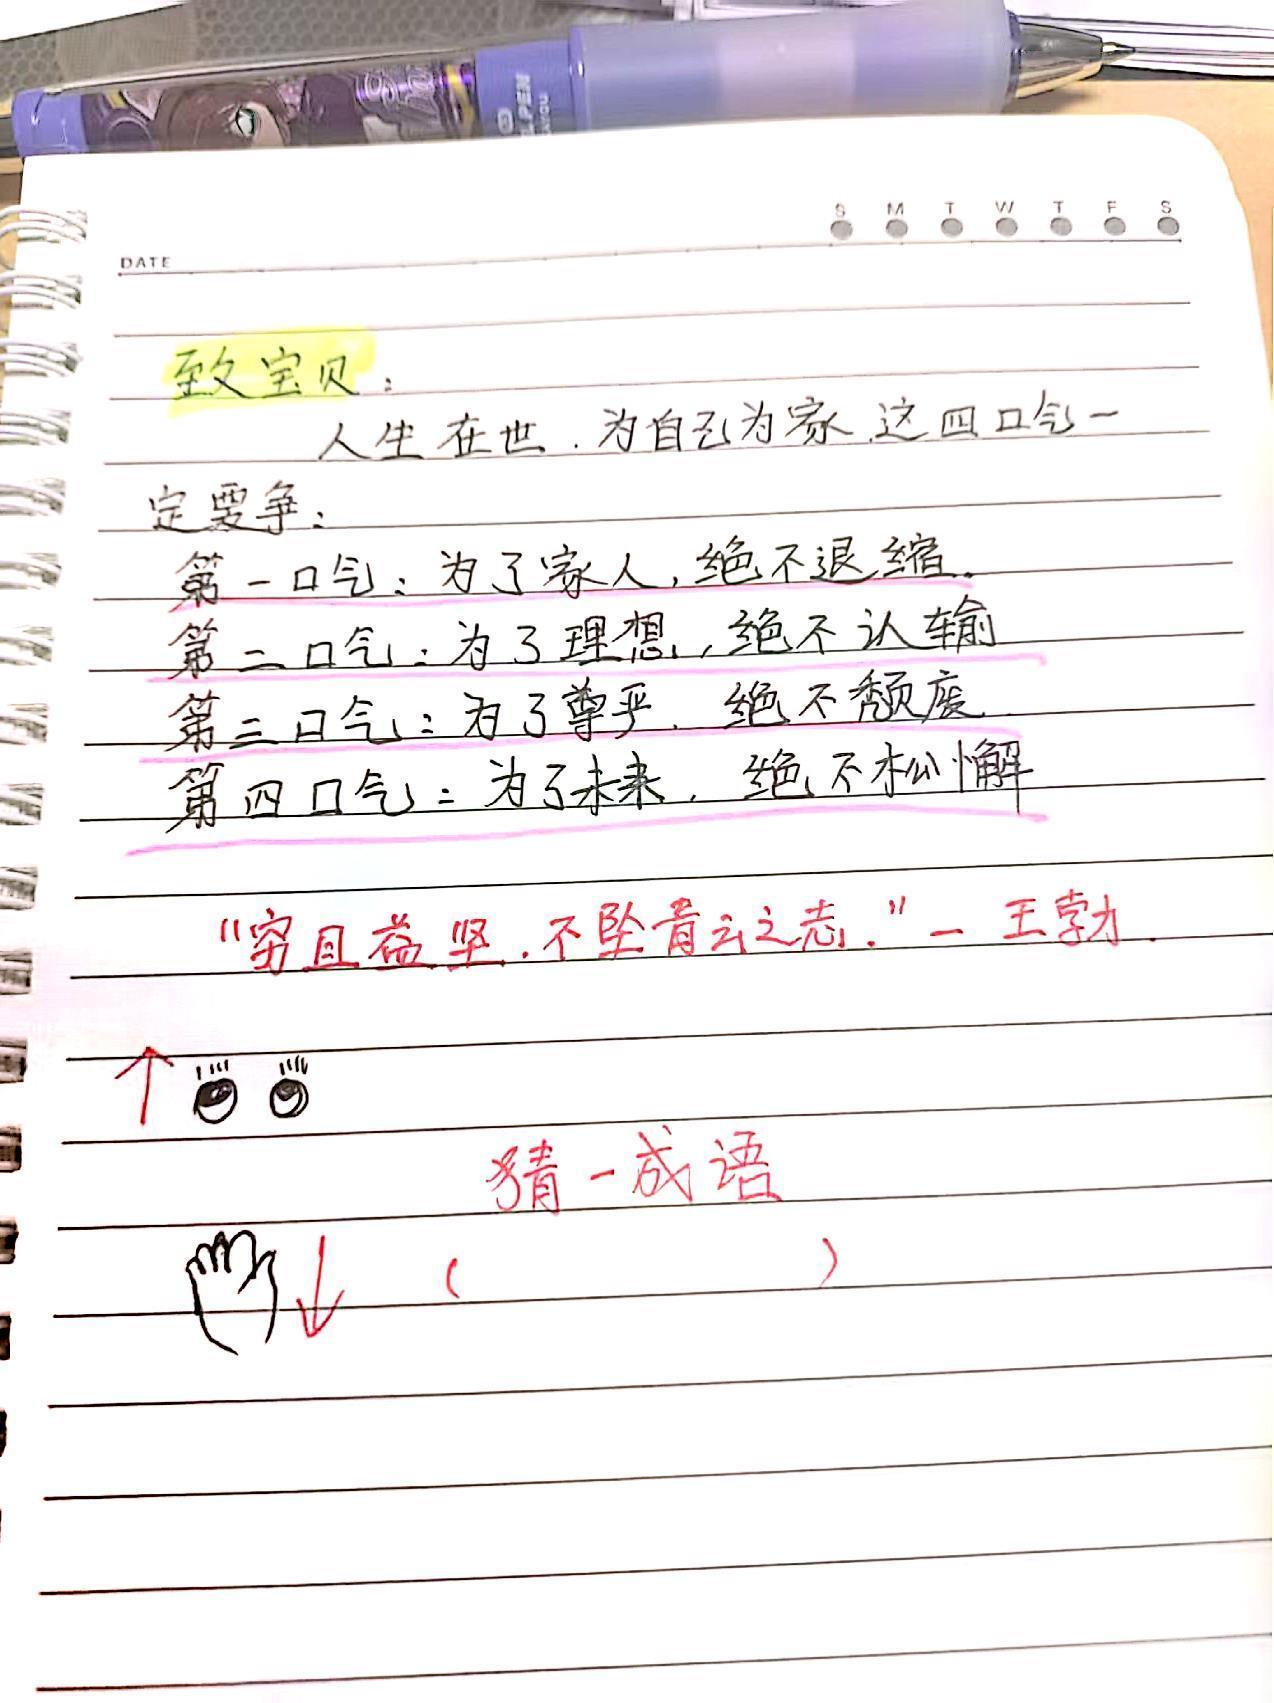 S M T W T F S
DATE
致宝贝：
人生在世，为自己为家，这四口气一
定要争：
第一口气：为了家人，绝不退缩。
第二口气：为了理想，绝不认输
第三口气：为了尊严，绝不颓废
第四口气：为了未来，绝不松懈
“穷且益坚，不坠青云之志。”－王勃．
猜一成语
（ ）